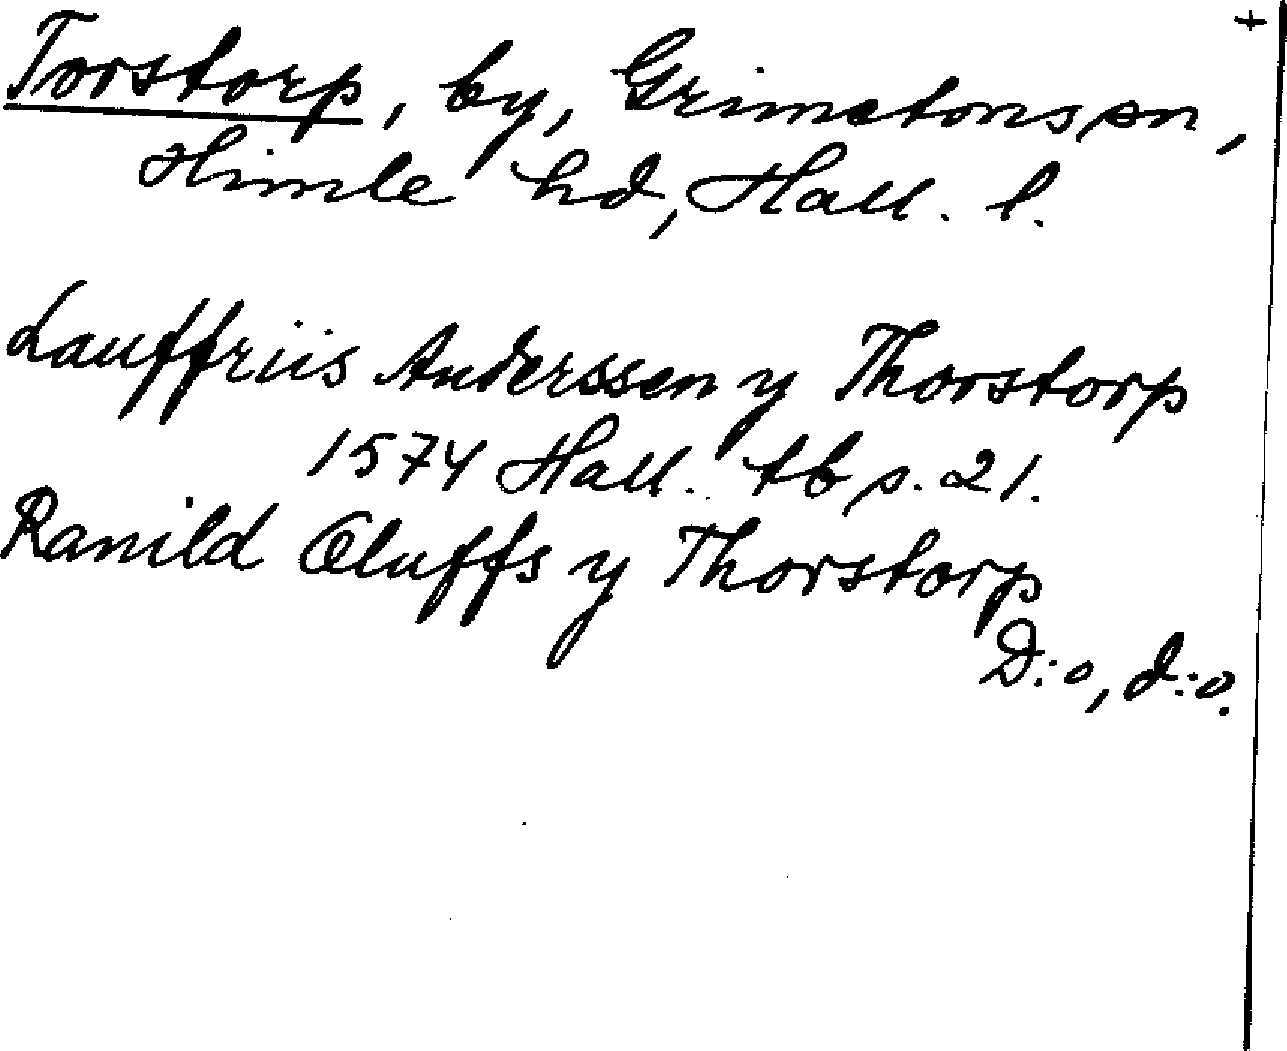 Torstorp, by, Grimetons sn, +
Himle hd, Hall. l.
Lauffriis Anderssen y Thorstorp
1574 Hall. tb s. 21.
Ranild Oluffs y Thorstorp
D:o, d:o.